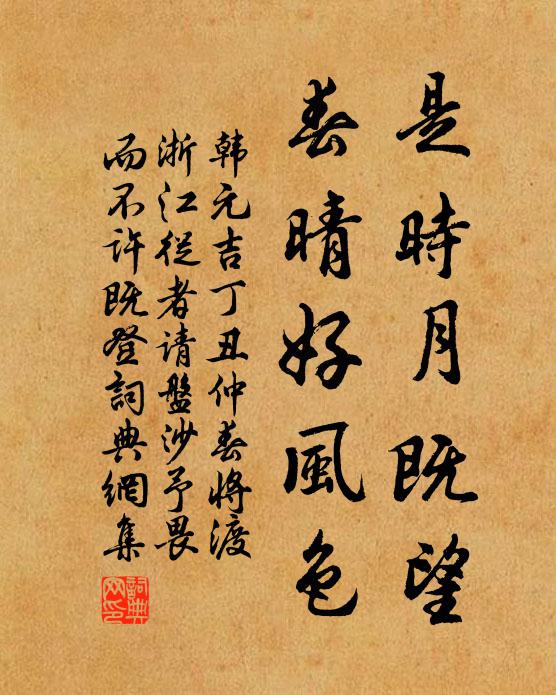 是時月既望
春晴好風色
韩元吉丁丑仲春將渡
浙江從者請盤沙予畏
而不许既登詞典網集
詞典网印